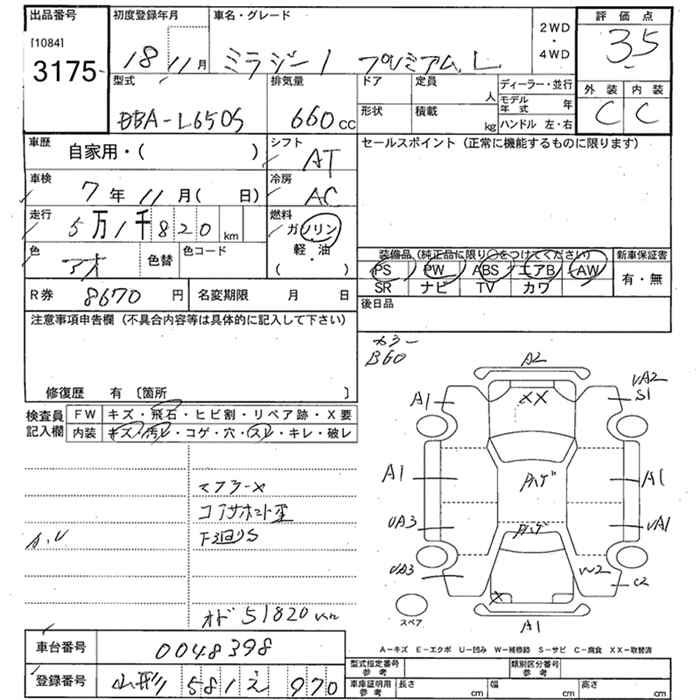 出品番号
[1084]
3175
初度登録年月
18 11月
車名・グレード
ミラジーノ プレミアムL
2WD
・
4WD
評価点
3.5
外装 内装
C C
型式
DBA-L650S
排気量
660cc
ドア
定員
人
形状
積載
kg
ディーラー・並行
モデル年式 年
ハンドル 左・右
車歴
自家用・( )
シフト
AT
セールスポイント (正常に機能するものに限ります)
車検
7年11月( 日)
冷房
AC
走行
5万1千820km
燃料
ガソリン
軽・油
( )
色
アオ
色替
色コード
装備品(純正品に限り○をつけてください)
PS PW ABS エアB AW
SR ナビ TV カワ
新車保証書
有・無
R券 8670円
名変期限 月 日
後日品
注意事項申告欄(不具合内容等は具体的に記入して下さい)
修復歴 有 〔箇所 〕
カラー
B60
検査員記入欄
FW キズ・飛石・ヒビ割・リペア跡・X要
内装 キズ・汚レ・コゲ・穴・スレ・キレ・破レ
マフラーX
コアサポート歪
下廻りS
A.U
オド51820km
A2
A1
XX
UA2
S1
A1
ハゲ
A1
UA3
ハゲ
UA1
UA3
W2
C2
X
A1
スペア
A-キズ E-エクボ U-凹み W-補修跡 S-サビ C-腐食 XX-取替済
車台番号 0048398
登録番号 山形 581 え 970
型式指定番号 参考
類別区分番号 参考
車庫証明用 参考
長さ cm
幅 cm
高さ cm